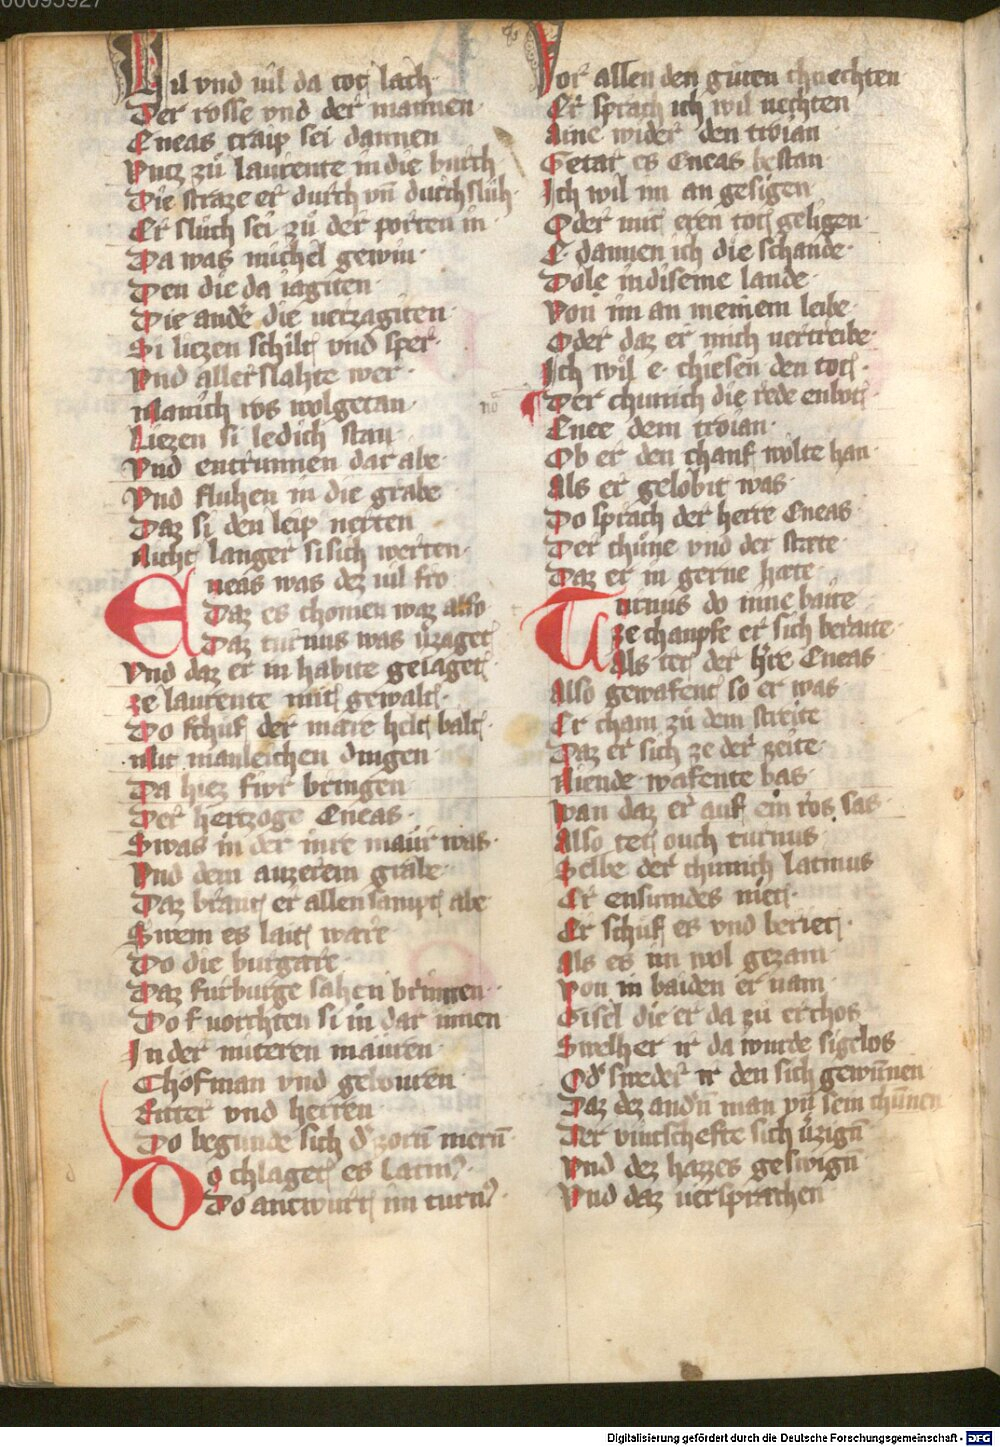 00095927
Vil vnd uil da tot lach·
Der rosse vnd der mannen·
Eneas traip sei dannen
Vntz zů laurente in die burch
Die straze er durch vñ durch slůh·
Er slůch sei zů der porten in·
Da was michel gewin·
Den die da iagiten·
Die ande die uerzagiten·
Si liezen schilt vnd sper·
Vnd aller slahte wer·
Manich ros wolgetan·
Liezen si ledich stan·
Vnd entrunnen dar abe·
Vnd fluhen in die grabe·
Daz si den leip nerten
Nicht langer si sich werten·
Eneas was dez uil fro
Daz es chomen waz also·
Daz turnus was uzaget·
Vnd daz er in habite geiaget·
ze laurente mit gewalt·
Do schuf der mare helt balt·
Mit manleichen dingen·
Da hiez fiwr bringen·
Der hertzoge Eneas·
Swas in der inre maur was·
Vnd dem auzerem grabe·
Daz brant er allen sampt abe
Swem es lait ware
Do die burgare·
Daz furburge sahen brinnen·
Do f uorchten si in dar innen
In der miteren mauren·
Chofman vnd gebouren
Ritter vnd herren
Do begunde sich d' zorn mern·
Do chlaget es Latin9
Do antwurt im turn9·
Vor allen den guten chnechten
Er sprach ich wil uechten
Aine wider den troian
Getar es Eneas bestan·
Ich wil im an gesigen·
Oder mit eren tot geligen·
E· dannen ich die schande·
Dole in diseme lande·
Von im an meinem leibe·
Oder daz er mich uertreibe·
Ich wil e· chiesen den tot·
no
Der chunich die rede enbot
Enee dem troian·
Ob er den chanf wolte han·
Als er gelobit was·
Do sprach der herre Eneas·
Der chůne vnd der stete·
Daz er in gerne hate·
Turnus do inne baite
ze champfe er sich beraite·
Als tet der h're Eneas·
Also gewafent so er was·
Er cham zů dem streite
Daz er sich ze der zeite·
Niende wafente bas·
Wan daz er auf ein ros sas·
Also tet ouch turnus
Selbe der chunich Latinus
Er ensumdes niet·
Er schuf es vnd beriet·
Als es im wol gezam·
Von in baiden er nam·
Gisel die er da zů erchos
Swelher ir da wurde sigelos
Od' sweder ir den sich gewunnen
Daz dez andn man vñ sein chunnen
Der vintschefte sich uzign
Vnd dez hazzes geswign
Vnd daz uersprachen
Digitalisierung gefördert durch die Deutsche Forschungsgemeinschaft - DFG